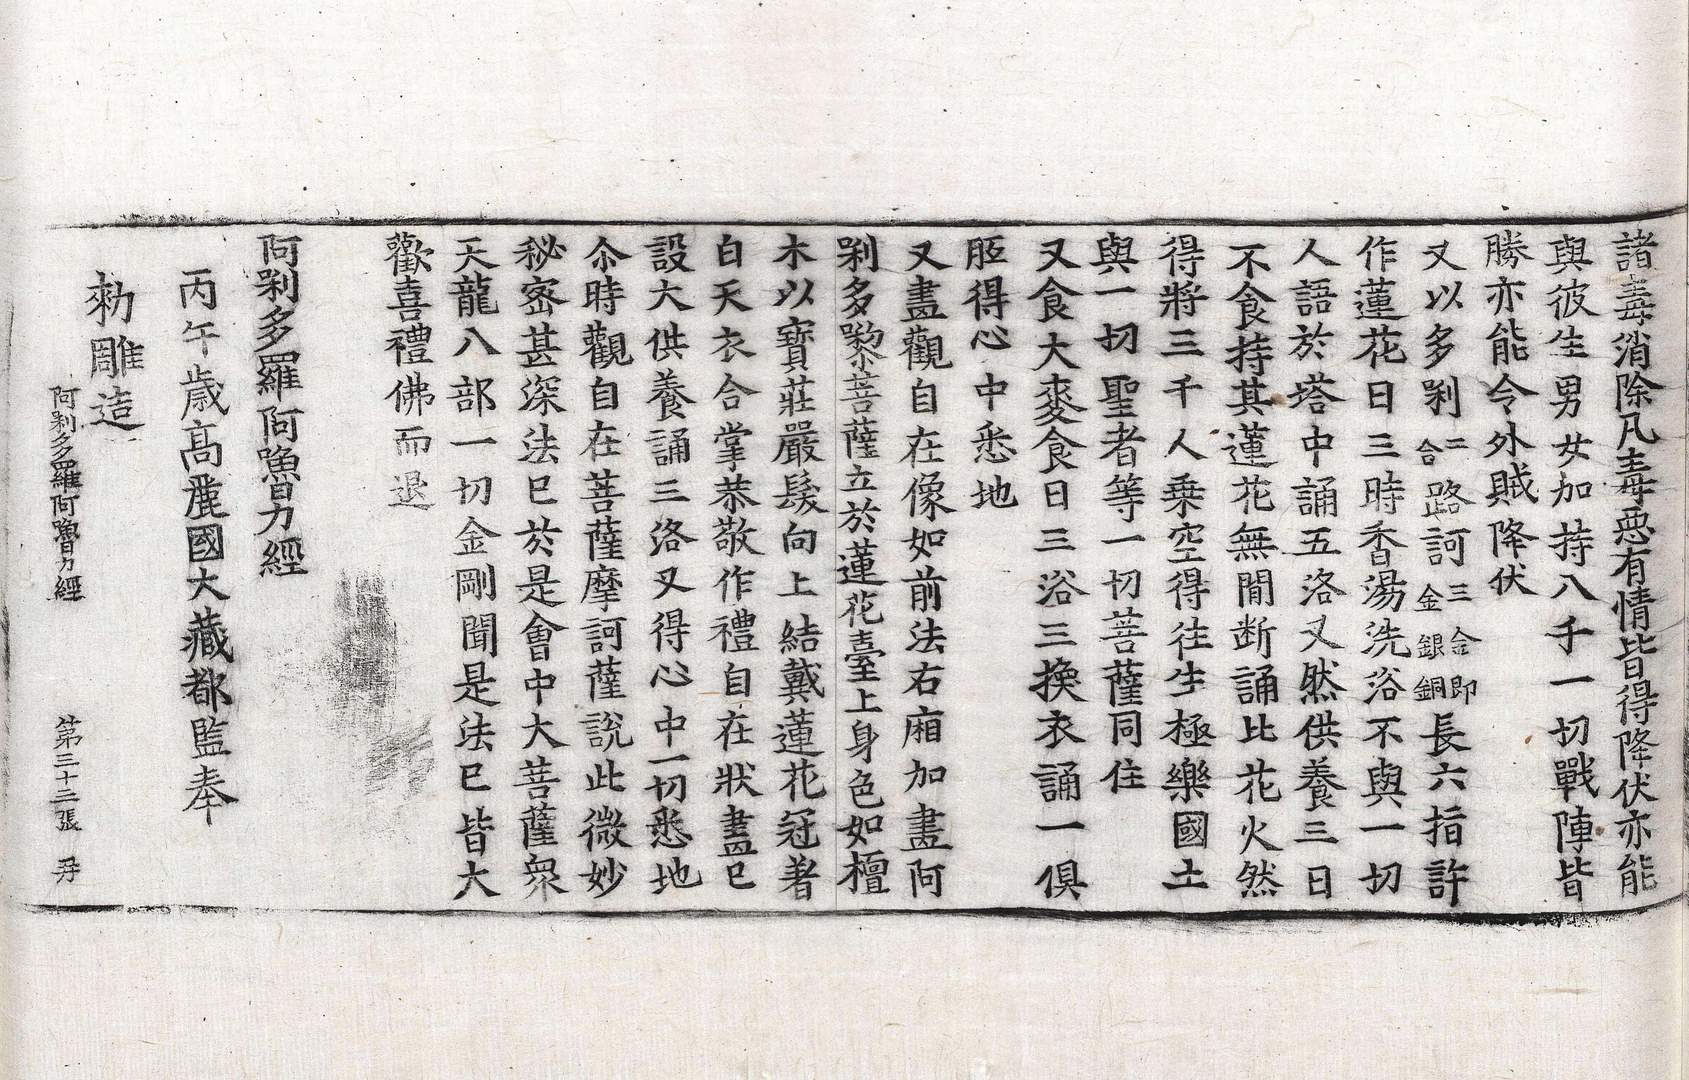 諸毒消除凡毒惡有情皆得降伏亦能
與彼生男女加持八千一切戰陣皆
勝亦能令外賊降伏
又以多剁二合路訶三金即金銀銅長六指許
作蓮花日三時香湯洗浴不與一切
人語於塔中誦五洛叉然供養三日
不食持其蓮花無閒断誦比花火然
得將三千人乗空得往生極樂國土
與一切聖者等一切菩薩同住
又食大麥食日三浴三換衣誦一俱
胝得心中悉地
又畫觀自在像如前法右廂加畫阿
剁多黎菩薩立於蓮花臺上身色如檀
木以寶莊嚴髮向上結戴蓮花冠著
白天衣合掌恭敬作禮自在狀畫巳
設大供養誦三洛叉得心中一切悉地
尒時觀自在菩薩摩訶薩說此微妙
秘密甚深法巳於是會中大菩薩衆
天龍八部一切金剛聞是法巳皆大
歡喜禮佛而退
阿剁多羅阿嚕力經
丙午歲高麗國大藏都監奉
勑雕造
阿剁多羅阿嚕力經 第三十二張